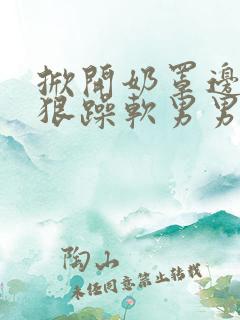 掀開奶罩邊
狠躁軟男男
陶山
未任同意禁止转载